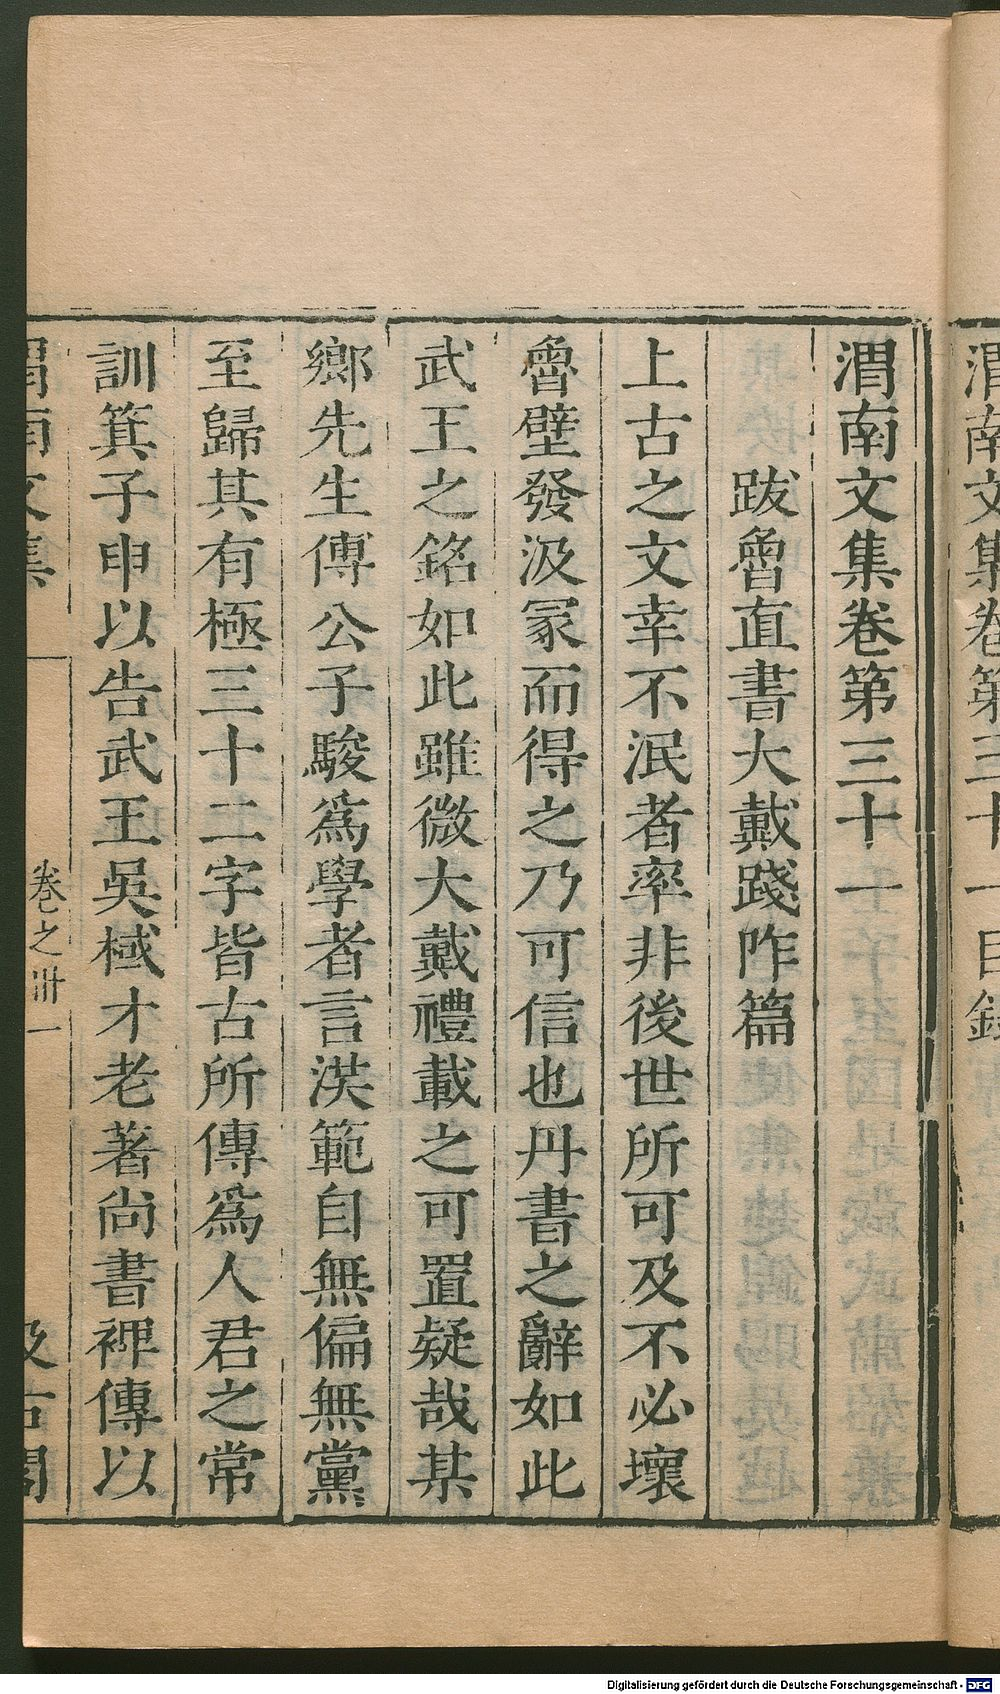 渭南文集卷第三十一目錄
渭南文集卷第三十一
跋魯直書大戴踐阼篇
上古之文幸不泯者率非後世所可及不必壞
魯壁發汲冢而得之乃可信也丹書之辭如此
武王之銘如此雖微大戴禮載之可置疑哉某
鄉先生傅公子駿爲學者言洪範自無偏無黨
至歸其有極三十二字皆古所傳爲人君之常
訓箕子申以告武王吳棫才老著尚書裨傳以
渭南文集
卷之卅一
汲古閣
Digitalisierung gefördert durch die Deutsche Forschungsgemeinschaft - DFG